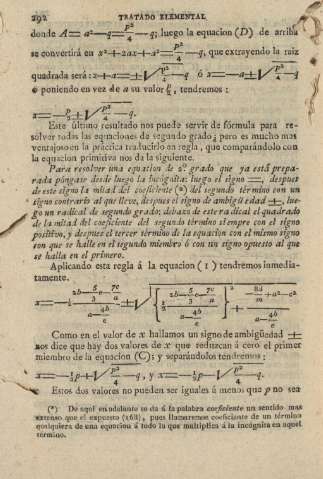 292 TRATADO ELEMENTAL
donde A=a²-q=p²/4-q; luego la equacion (D) de arriba
se convertirá en x²+2ax+a²=p²/4-q, que extrayendo la raiz
quadrada será: x+a=±√p²/4-q ó x=-a±√p²/4-q
ó poniendo en vez de a su valor p/2, tendremos:
x=-p/2±√p²/4-q.
Este último resultado nos puede servir de fórmula para re-
solver todas las equaciones de segundo grado; pero es mucho mas
ventajoso en la práctica traducirlo en regla, que comparándolo con
la equacion primitiva nos da la siguiente.
Para resolver una equacion de 2º grado que ya está prepa-
rada póngase desde luego la incógnita: luego el signo =, despues
de este signo la mitad del coeficiente (*) del segundo término con un
signo contrario al que lleve, despues el signo de ambigüedad ±, lue-
go un radical de segundo grado; debaxo de este radical el quadrado
de la mitad del coeficiente del segundo término siempre con el signo
positivo, y despues el tercer término de la equacion con el mismo signo
con que se halle en el segundo miembro ó con un signo opuesto al que
se halla en el primero.
Aplicando esta regla á la equacion (1) tendremos inmedia-
tamente.
Como en el valor de x hallamos un signo de ambigüedad ±
nos dice que hay dos valores de x que reduzcan á cero el primer
miembro de la equacion (C); y separándolos tendremos:
x=-½p+√p²/4-q, y x=-½p-√p²/4-q.
Estos dos valores no pueden ser iguales á menos que p no sea
(*) De aquí en adelante se da á la palabra coeficiente un sentido mas
extenso que el expuesto (168), pues llamaremos coeficiente de un término
qualquiera de una equacion á todo lo que multiplica á la incógnita en aquel
término.